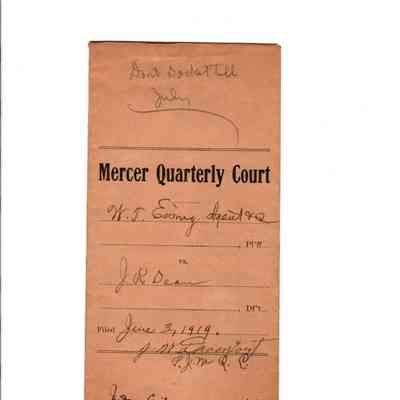 Dont Docket till
July
Mercer Quarterly Court
W. T. Ewing Agent &c
, Pl'ff.
vs.
J R Dean
, Def't.
Filed June 3, 1919.
J W Davenport
P. J. M Q. C.